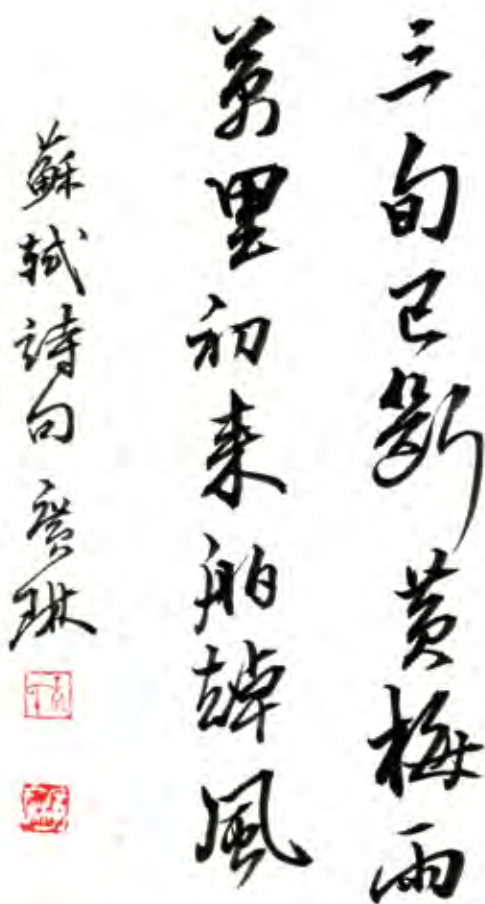 三旬已斷黄梅雨
萬里初来舶趠風
蘇軾詩句 廣琳